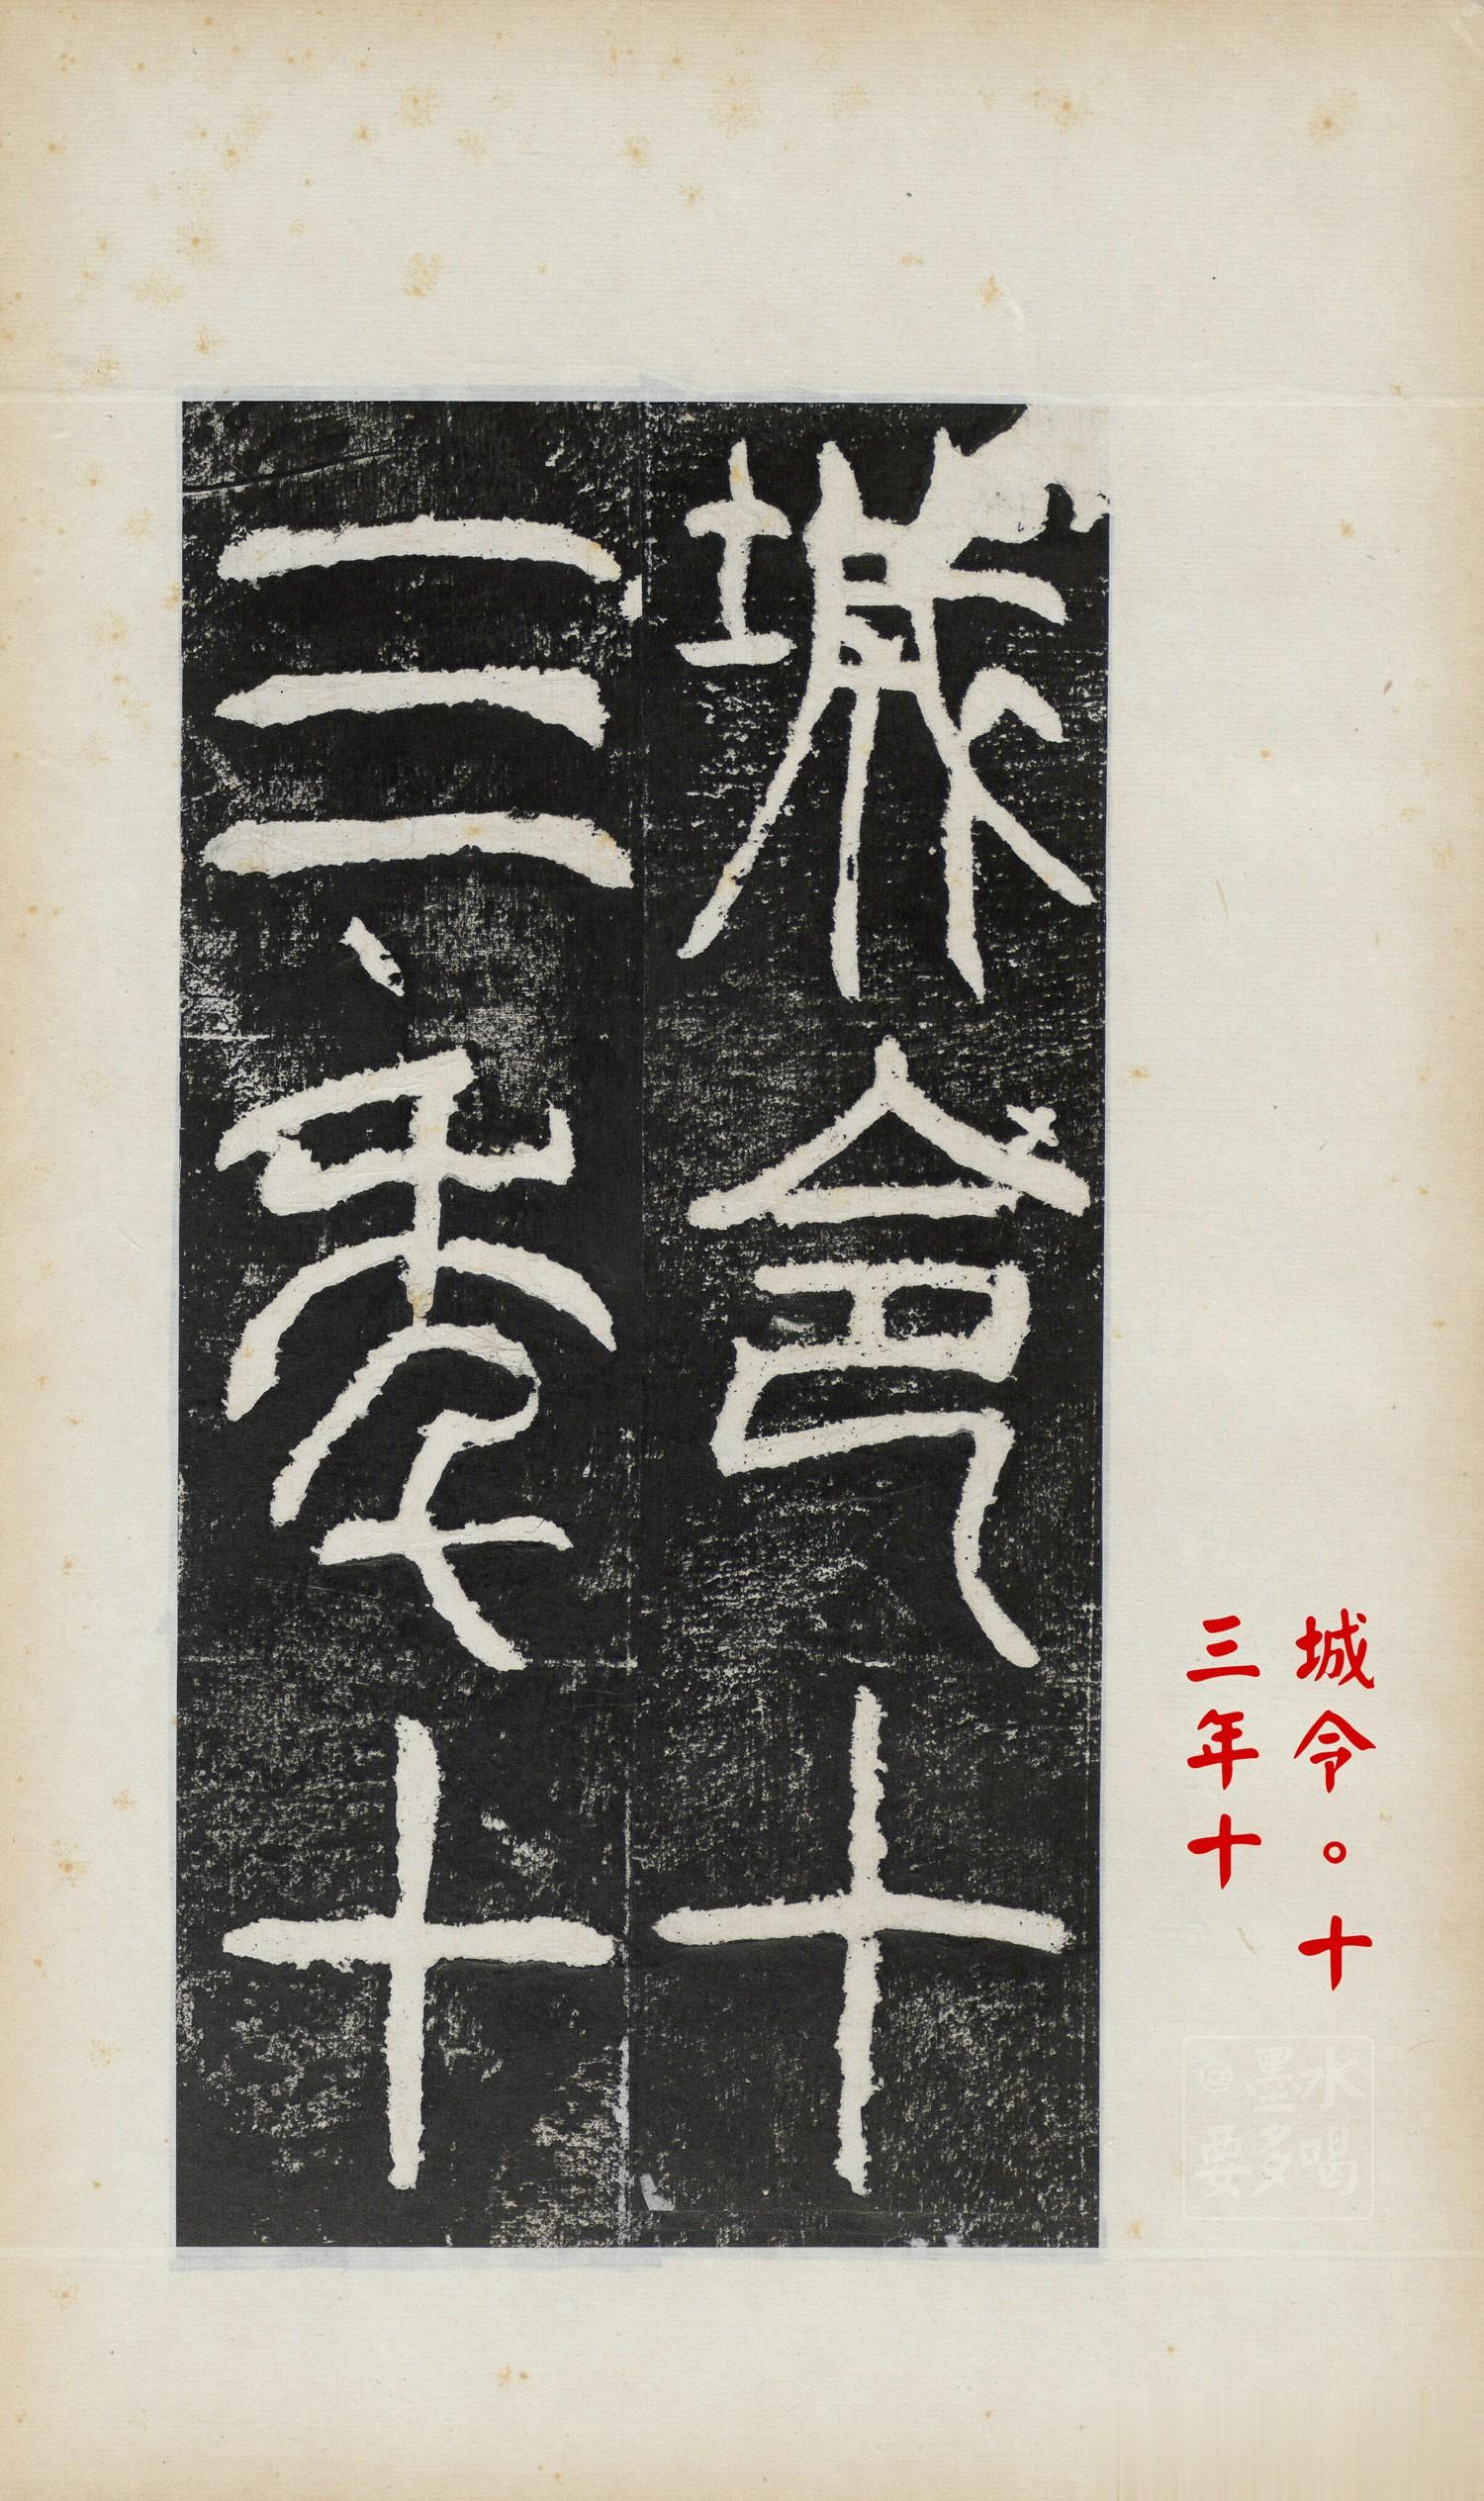 城令十
三年十
城令。十
三年十
@水墨
喝多要